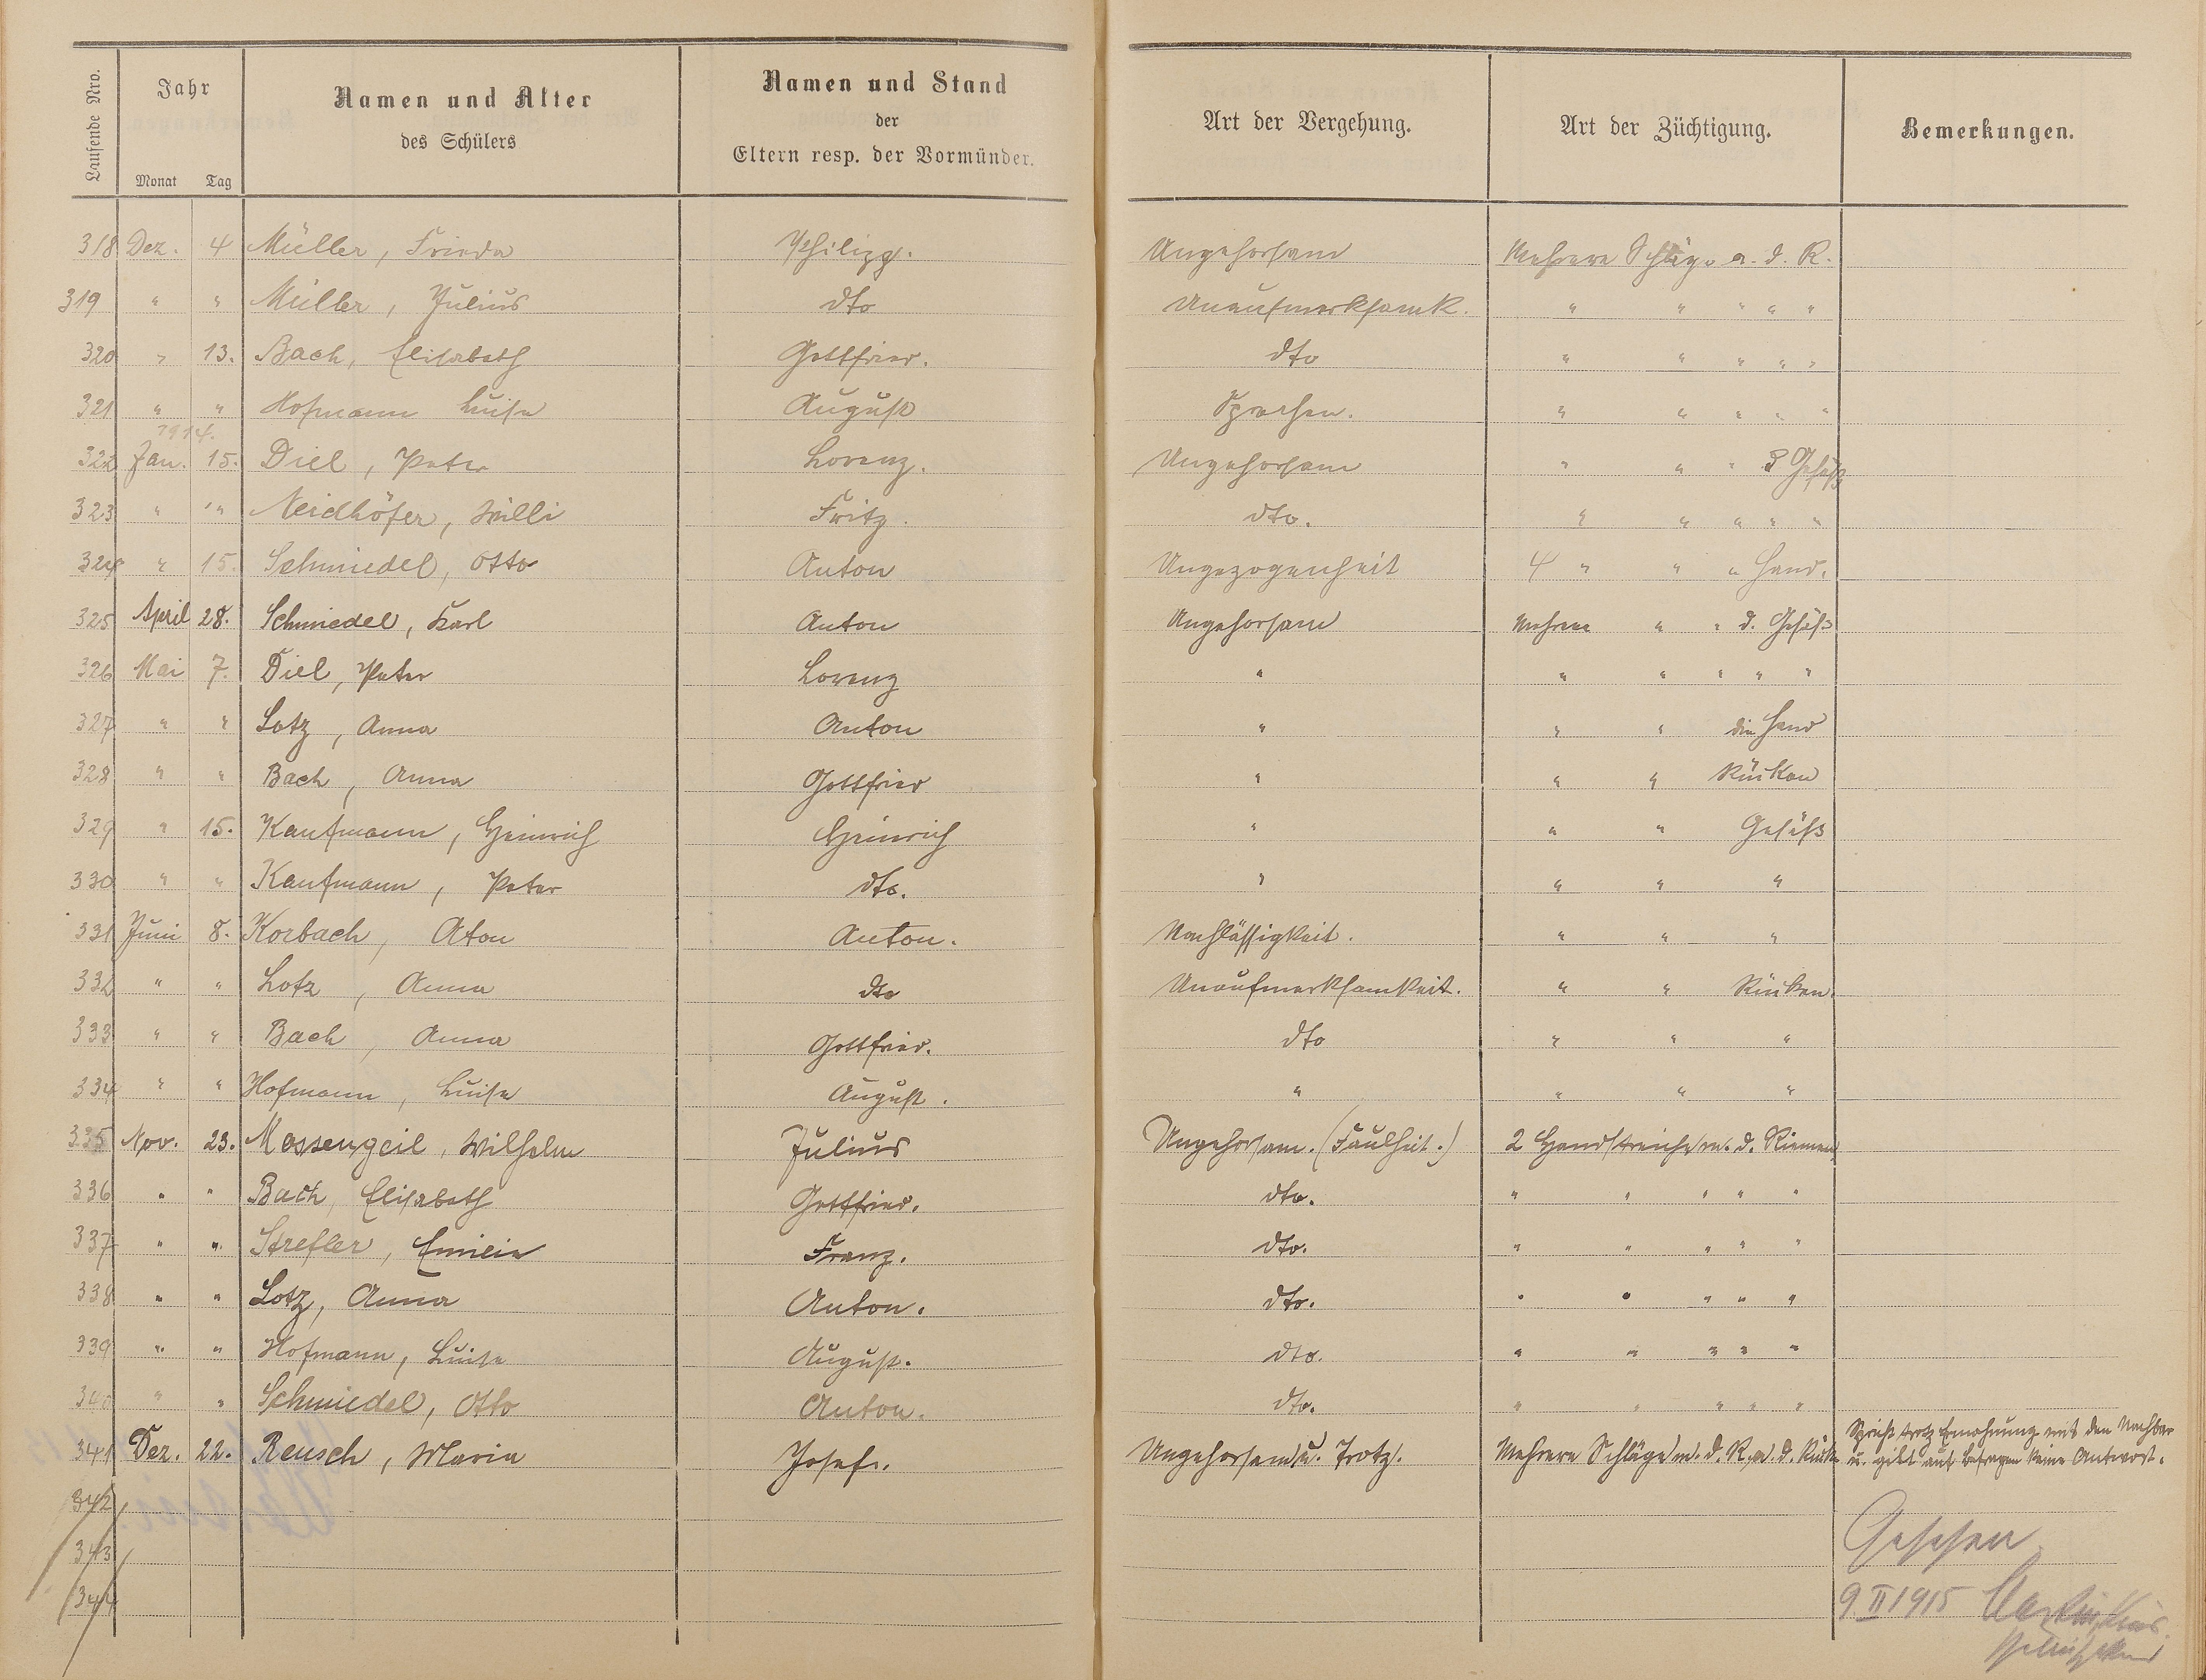 Laufende Nro.
Jahr
Monat Tag
Namen und Alter
des Schülers
Namen und Stand
der
Eltern resp. der Vormünder.
Art der Vergehung.
Art der Züchtigung.
Bemerkungen.
318 Dez. 4 Müller, Frieda Philipp. Ungehorsam Mehrere Schläge a. d. R.
319 " " Müller, Julius dto Unaufmerksamk. " " " " "
320 " 13. Bach, Elisabeth Gottfried. dto " " " " "
321 " " Hofmann Luise August Sprechen. " " " " "
1914.
322 Jan. 15. Diel, Peter Lorenz. Ungehorsam " " " d Gesäß
323 " " Neidhöfer, Willi Fritz. dto. " " " " "
324 " 15. Schmiedel, Otto Anton Ungezogenheit 4 " " " Hand.
325 April 28. Schmiedel, Karl Anton Ungehorsam Mehrere " " d. Gesäß
326 Mai 7. Diel, Peter Lorenz " " " " " "
327 " " Lotz, Anna Anton " " " die Hand
328 " " Bach, Anna Gottfried " " " Rücken
329 " 15. Kaufmann, Heinrich Heinrich " " " Gesäß
330 " " Kaufmann, Peter dto. " " " "
331 Juni 8. Korbach, Aton Anton. Nachlässigkeit. " " "
332 " " Lotz, Anna dto Unaufmerksamkeit. " " Rücken.
333 " " Bach, Anna Gottfried. dto " " "
334 " " Hofmann, Luise August. " " " "
335 Nov. 23. Massengeil, Wilhelm Julius Ungehorsam. (Faulheit.) 2 Handstreiche m. d. Riemen
336 " " Bach, Elisabeth Gottfried. dto. " " " " "
337 " " Strefler, Emilie Franz. dto. " " " " "
338 " " Lotz, Anna Anton. dto. " " " " "
339 " " Hofmann, Luise August. dto. " " " " "
340 " " Schmiedel, Otto Anton. dto. " " " " "
341 Dez. 22. Reusch, Maria Josef. Ungehorsam u. Trotz. Mehrere Schläge m. d. R. a. d. Rücken Spricht trotz Ermahnung mit den Nachbar
u. gibt auf Befragen keine Antwort.
342
343 Gesehen
344 9 II 1915